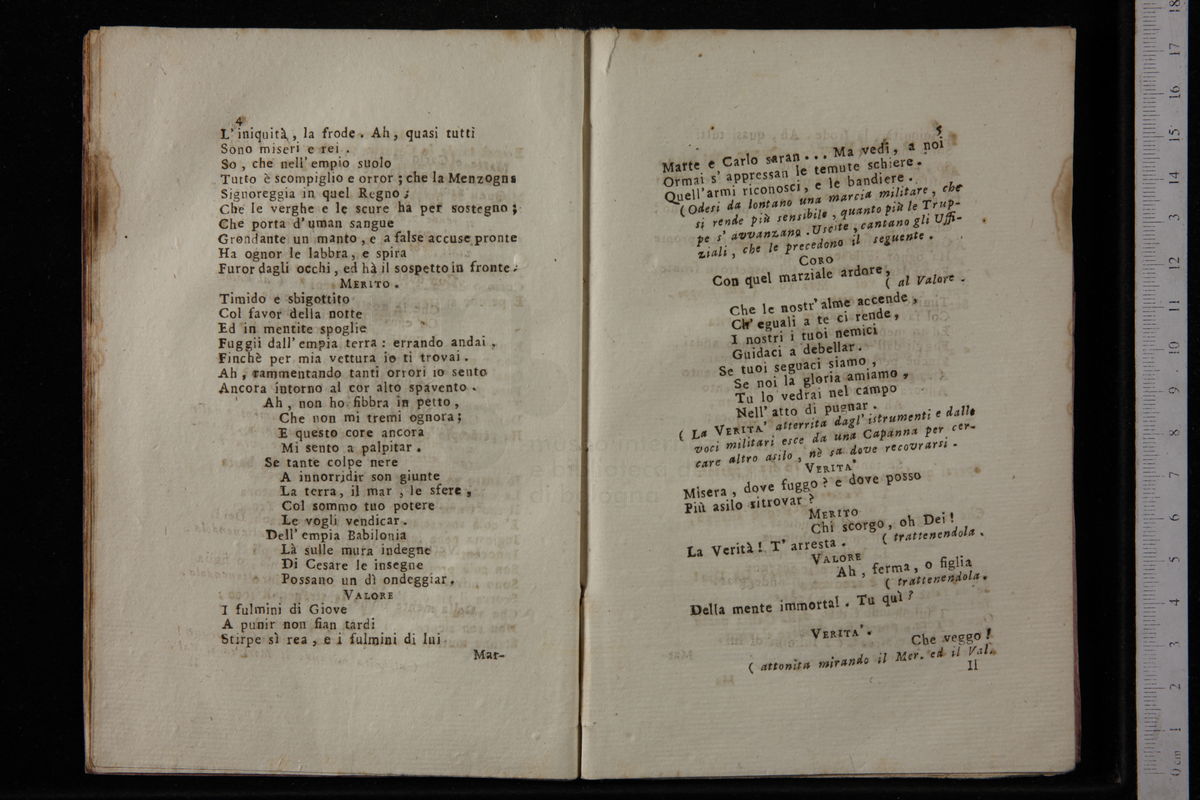 4
L'iniquità, la frode. Ah, quasi tutti
Sono miseri e rei.
So, che nell'empio suolo
Tutto è scompiglio e orror; che la Menzogna
Signoreggia in quel Regno;
Che le verghe e le scure ha per sostegno;
Che porta d'uman sangue
Grondante un manto, e a false accuse pronte
Ha ognor le labbra, e spira
Furor dagli occhi, ed hà il sospetto in fronte.
MERITO.
Timido e sbigottito
Col favor della notte
Ed in mentite spoglie
Fuggii dall'empia terra: errando andai,
Finchè per mia vettura io ti trovai.
Ah, rammentando tanti orrori io sento
Ancora intorno al cor alto spavento.
Ah, non ho fibbra in petto,
Che non mi tremi ognora;
E questo core ancora
Mi sento a palpitar.
Se tante colpe nere
A innorridir son giunte
La terra, il mar, le sfere,
Col sommo tuo potere
Le vogli vendicar.
Dell'empia Babilonia
Là sulle mura indegne
Di Cesare le insegne
Possano un dì ondeggiar.
VALORE
I fulmini di Giove
A punir non fian tardi
Stirpe sì rea, e i fulmini di lui
Mar-
5
Marte e Carlo saran... Ma vedi, a noi
Ormai s'appressan le temute schiere.
Quell'armi riconosci, e le bandiere.
(Odesi da lontano una marcia militare, che
si rende più sensibile, quanto più le Trup-
pe s'avvanzano. Uscite, cantano gli Uffi-
ziali, che le precedono il seguente.
CORO
Con quel marziale ardore,
( al Valore.
Che le nostr'alme accende,
Ch'eguali a te ci rende,
I nostri i tuoi nemici
Guidaci a debellar.
Se tuoi seguaci siamo,
Se noi la gloria amiamo,
Tu lo vedrai nel campo
Nell'atto di pugnar.
( La VERITA' atterrita dagl'istrumenti e dalle
voci militari esce da una Capanna per cer-
care altro asilo, nè sa dove recovrarsi.
VERITA'
Misera, dove fuggo? e dove posso
Più asilo ritrovar?
MERITO
Chi scorgo, oh Dei!
La Verità! T'arresta. ( trattenendola.
VALORE
Ah, ferma, o figlia
( trattenendola.
Della mente immortal. Tu quì?
VERITA'.
Che veggo!
( attonita mirando il Mer. ed il Val.
Il